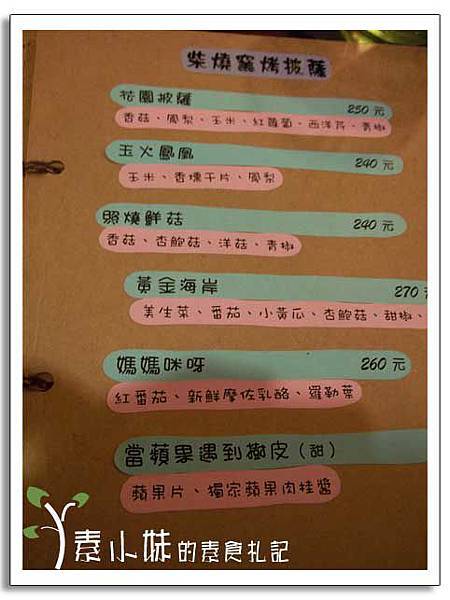 柴燒窯烤披薩
花園披薩 250 元
香菇、鳳梨、玉米、紅蘿蔔、西洋芹、青椒
玉火鳳凰 240 元
玉米、香燻干片、鳳梨
照燒鮮菇 240 元
香菇、杏鮑菇、洋菇、青椒
黃金海岸 270 元
美生菜、番茄、小黃瓜、杏鮑菇、甜椒、
媽媽咪呀 260 元
紅番茄、新鮮摩佐乳酪、羅勒葉
當蘋果遇到樹皮（甜）
蘋果片、獨家蘋果肉桂醬
素小妹的素食札記